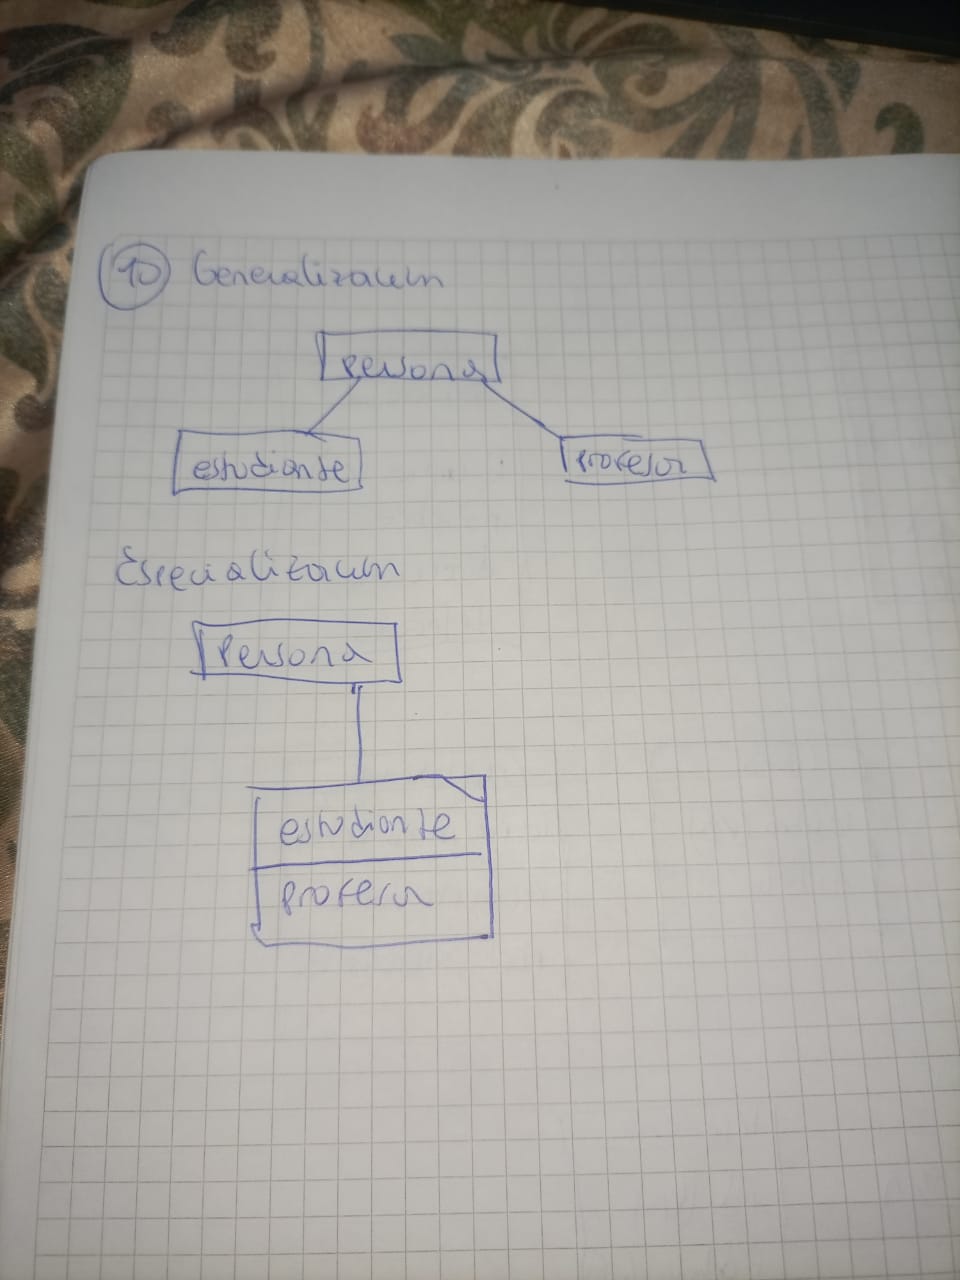 10 Generalización
Persona
estudiante
Profesor
Especialización
Persona
estudiante
profesor